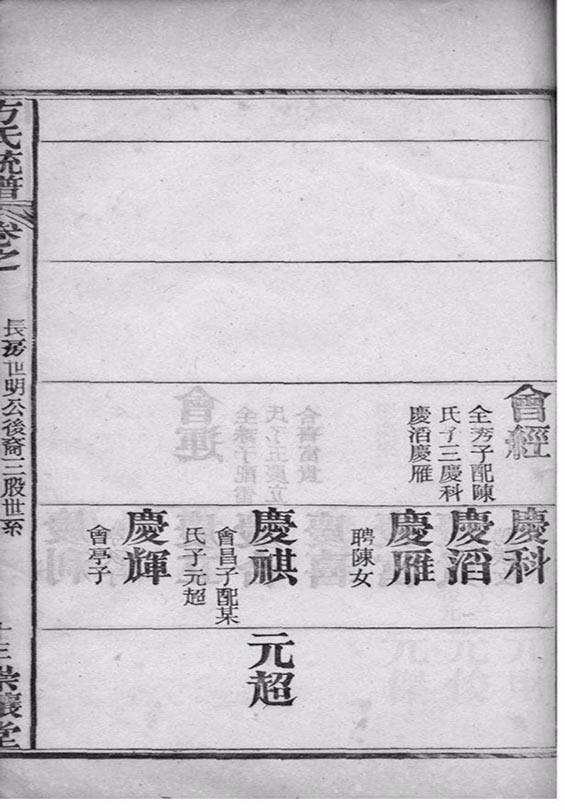 會經
全秀子配陳
氏了三慶科
慶滔慶雁
慶科
慶滔
慶雁
聘陳女
慶祺
會昌子配某
氏子元超
慶輝
會亭子
元超
方氏統譜
卷之
長房世明公後裔三股世系
堂